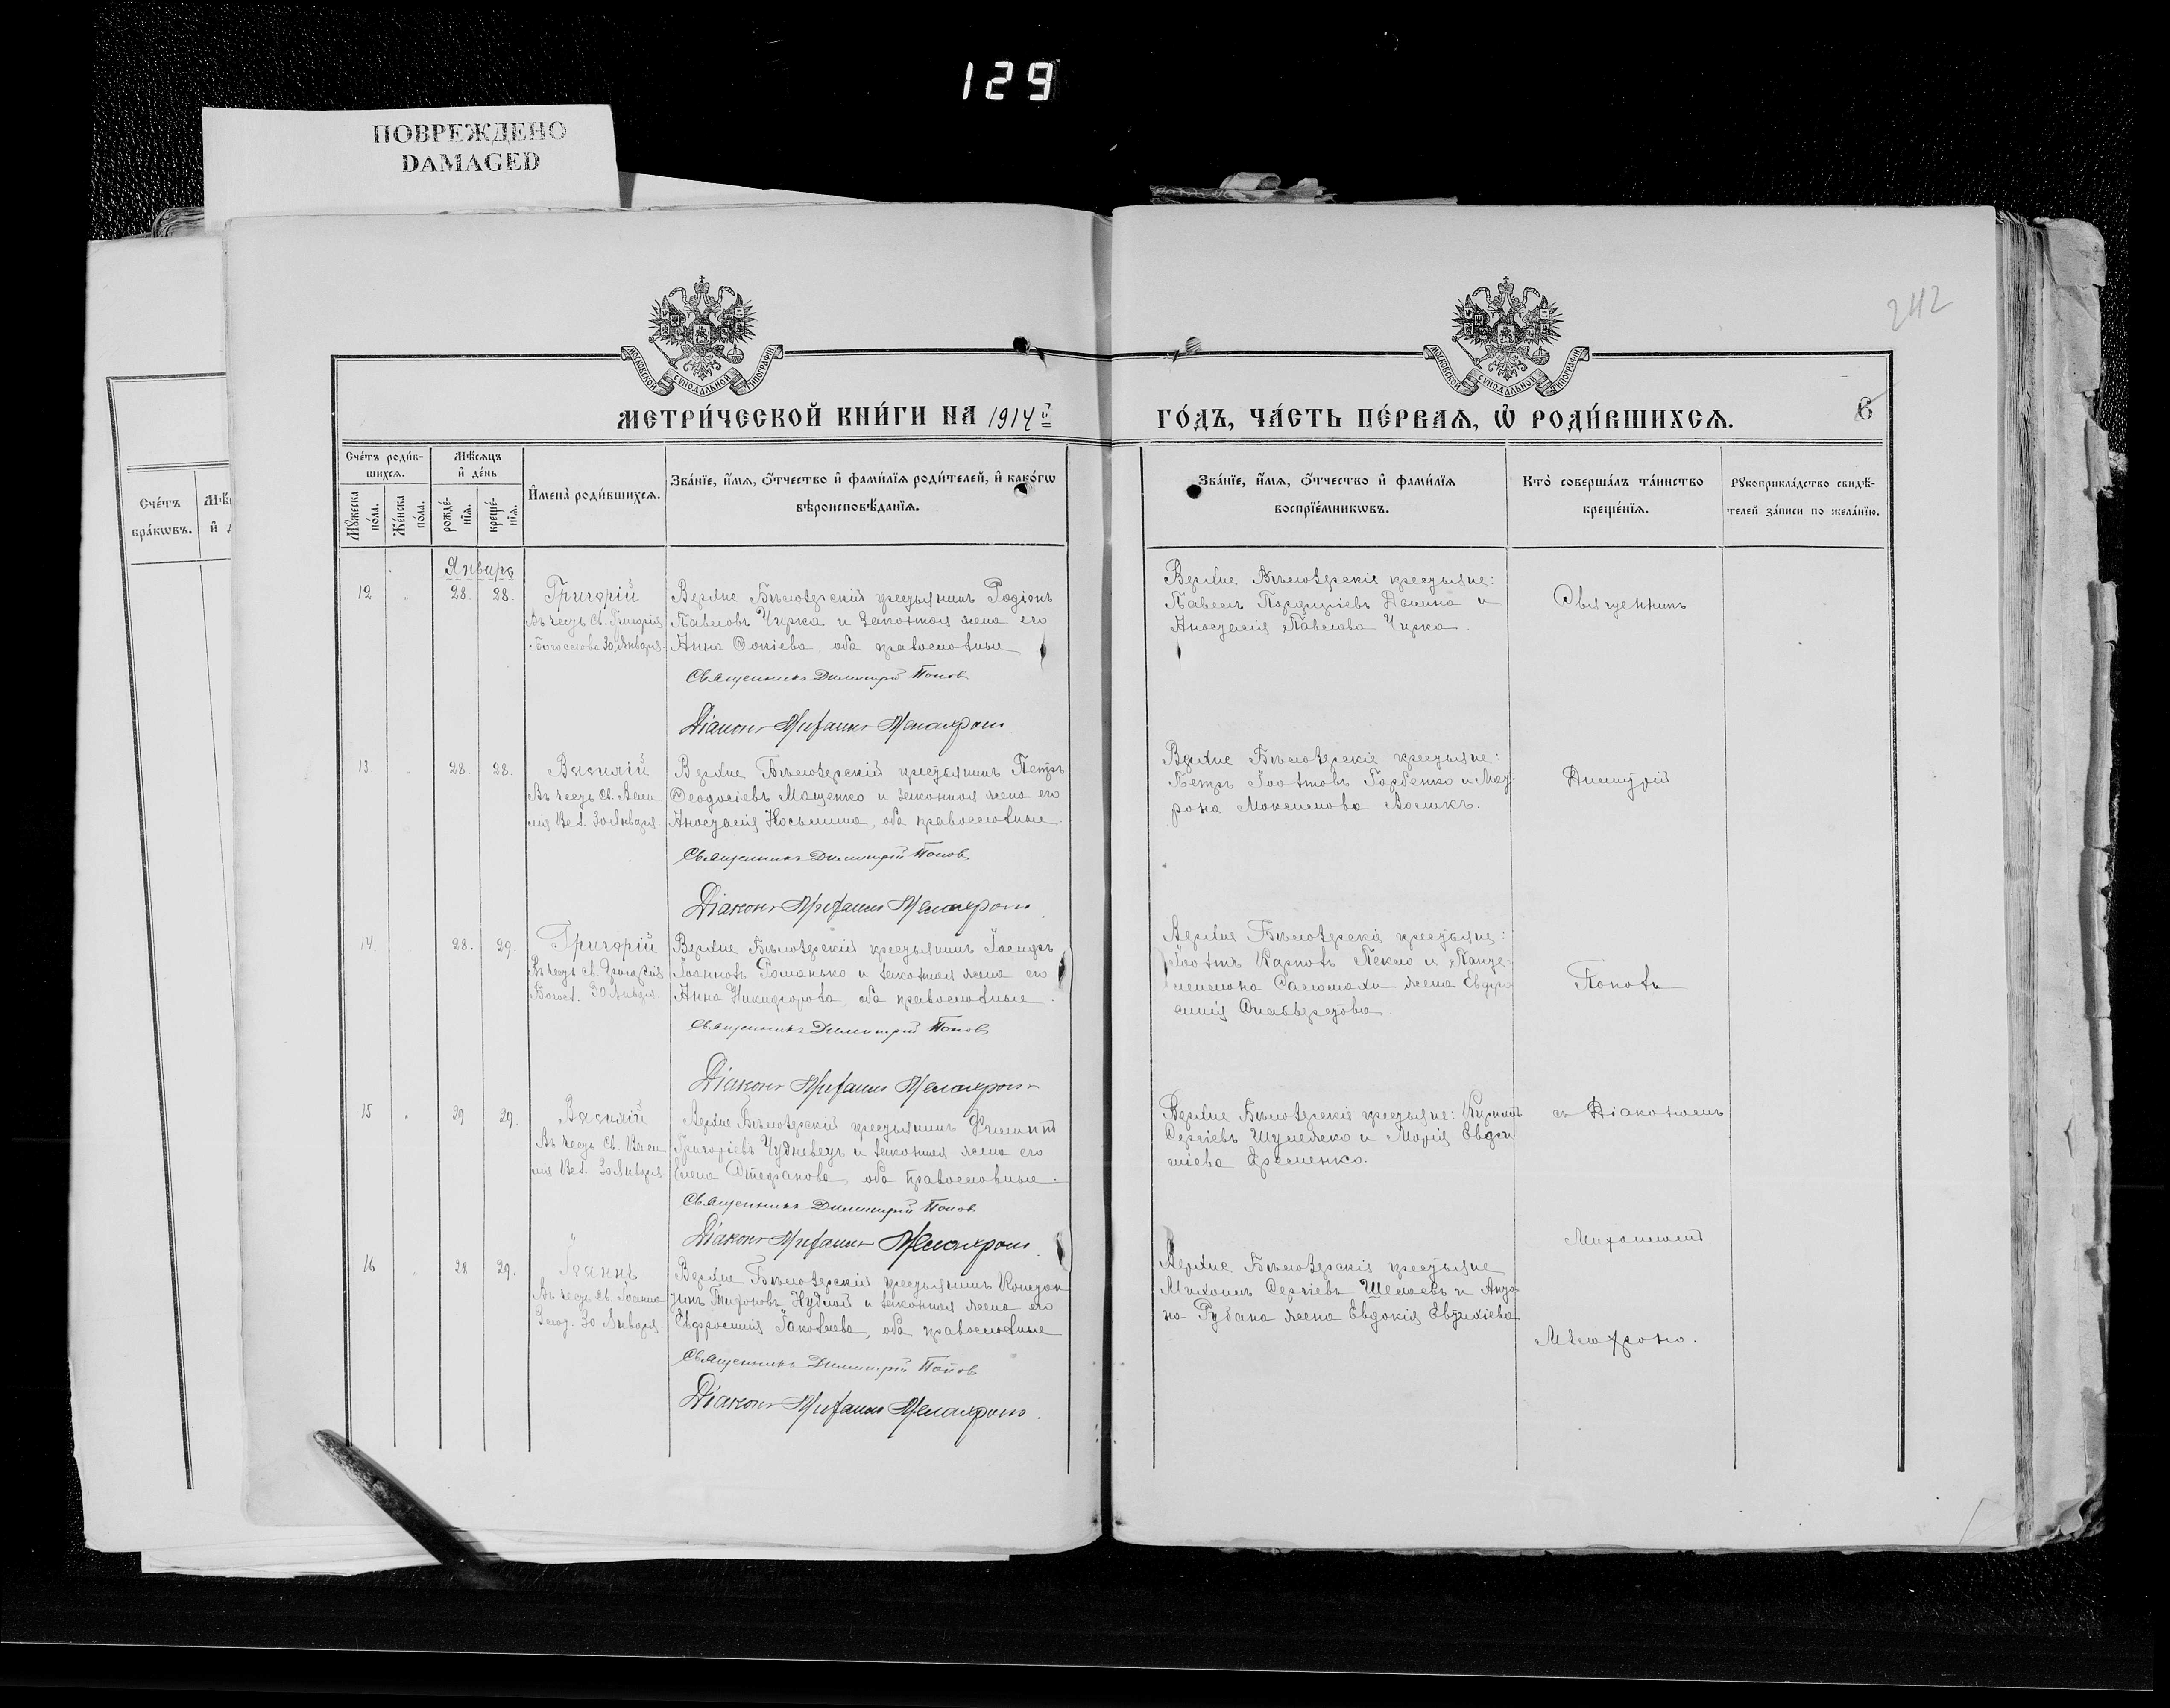 129
ПОВРЕЖДЕНО
DAMAGED
242
МОСКОВСКОЙ СѴНОДАЛЬНОЙ ТИПОГРАФІИ
МОСКОВСКОЙ СѴНОДАЛЬНОЙ ТИПОГРАФІИ
МЕТРИ́ЧЕСКОЙ КНИ́ГИ НА 1914й
ГО́ДЪ, ЧА́СТЬ ПЕ́РВАЯ, Ѡ҆ РОДИ́ВШИХСЯ.
6
Сче́тъ
бра́кѡвъ.
Сче́тъ роди́в-
шихся.
Мѹ́жеска по́ла.
Же́нска по́ла.
Мѣ́сяцъ
и҆ де́нь
рожде́-
нїя.
креще́-
нїя.
И҆мена̀ роди́вшихся.
Зва́нїе, и҆́мя, ѻ҆́тчество и҆ фами́лїя роди́телей, и҆ како́гѡ
вѣроисповѣ́данїя.
Зва́нїе, и҆́мя, ѻ҆́тчество и҆ фами́лїя
воспрїе́мникѡвъ.
Кто̀ соверша́лъ та́инство
креще́нїя.
Рѹкоприкла́дство свидѣ́-
телей за́писи по жела́нїю.
Январь
12
28.
28.
Григорій
Въ честь св. Григорія
Богослова 30 Января.
Верхне Бѣлозерскій крестьянинъ Родіонъ
Павловъ Чирка и законная жена его
Анна Фокіева, оба православные
Священникъ Димитрій Попов
Діаконъ Михаилъ
Верхне Бѣлозерскіе крестьяне:
Павелъ Порфиріевъ и
Анастасія Павлова Чирка.
Священникъ
13.
28.
28.
Василій
Въ честь св. Васи
лія Вел. 30 Января.
Верхне Бѣлозерскій крестьянинъ Петръ
Феодосіевъ Мащенко и законная жена его
Анастасія Косьмина, оба православные.
Священникъ Димитрій Попов
Діаконъ Михаилъ
Верхне Бѣлозерскіе крестьяне:
Петръ Іоанновъ Горбенко и Мат-
рона Максимова
Димитрій
14.
28.
29.
Григорій
Въ честь св. Григорія
Богосл. 30 Января.
Верхне Бѣлозерскій крестьянинъ Іосифъ
Іоанновъ Романько и законная жена его
Анна Никифорова, оба православные.
Священникъ Димитрій Попов
Діаконъ Михаилъ
Верхне Бѣлозерскіе крестьяне:
Іоаннъ Карповъ и Панте-
леимона жена Евфро
синія
Поповъ
15
29
29.
Василій
Въ честь св. Васи
лія Вел. 30 Января
Верхне Бѣлозерскій крестьянинъ Филиппъ
Григоріевъ и законная жена его
Елена Стефанова, оба православные.
Священникъ Димитрій Попов
Діаконъ Михаилъ
Верхне Бѣлозерскіе крестьяне: Кириллъ
Сергіевъ Шумейко и Марія Евдоки
Еременко.
съ Діакономъ
16
28
29.
Іоаннъ
Въ честь св. Іоанна
Злат. 30 Января.
Верхне Бѣлозерскій крестьянинъ Констан
тинъ Тифоновъ Нудной и законная жена его
Евфросинія Іаковлева, оба православные
Священникъ Димитрій Попов
Діаконъ Михаилъ
Верхне Бѣлозерскіе крестьяне
Михаилъ Сергіевъ и
Рубана жена Евдокія Евтихіева
Михаиломъ